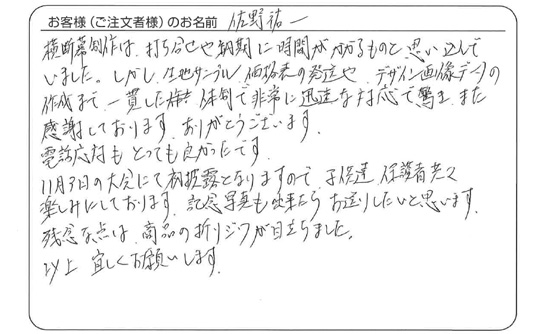 お客様（ご注文者様）のお名前 佐野祐一
横断幕制作は、打ち合せや納期に時間がかかるものと思い込んで
いました。しかし、生地サンプル、価格表の発送や、デザイン画像データの
作成まで一貫した体制で非常に迅速な対応で驚き、また
感謝しております。ありがとうございます。
電話応対もとっても良かったです。
11月3日の大会にて初披露となりますので、子供達、保護者共々
楽しみにしております。記念写真も出来たらお送りしたいと思います。
残念な点は、商品の折りジワが目立ちました。
以上 宜しくお願いします。